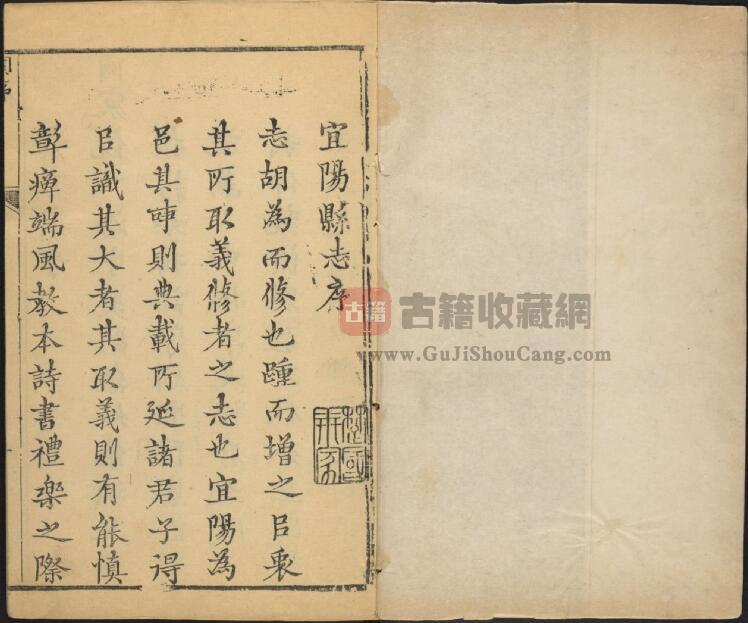 宜陽縣志序
志胡為而修也踵而增之㠯乘
其所取義修者之志也宜陽為
邑其時則典載所延諸君子得
㠯識其大者其取義則有能慎
彰癉端風教本詩書禮樂之際
古籍 古籍收藏網
www.GuJiShouCang.com